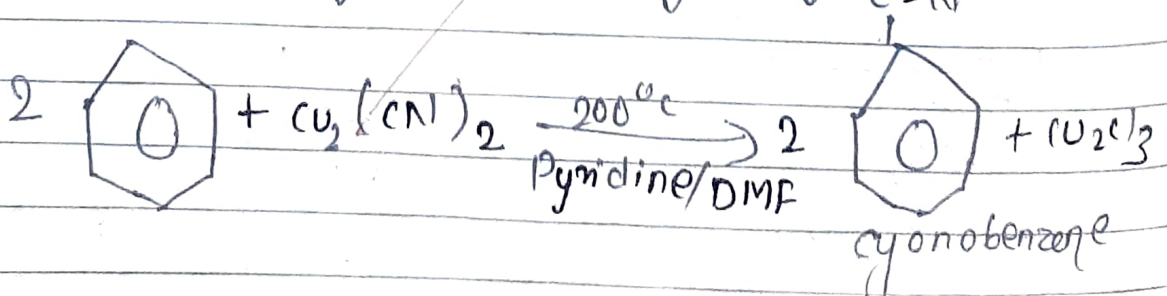 2 + Cu₂(CN)₂ 200°C Pyridine/DMF 2 + Cu₂Cl₃
cyonobenzene